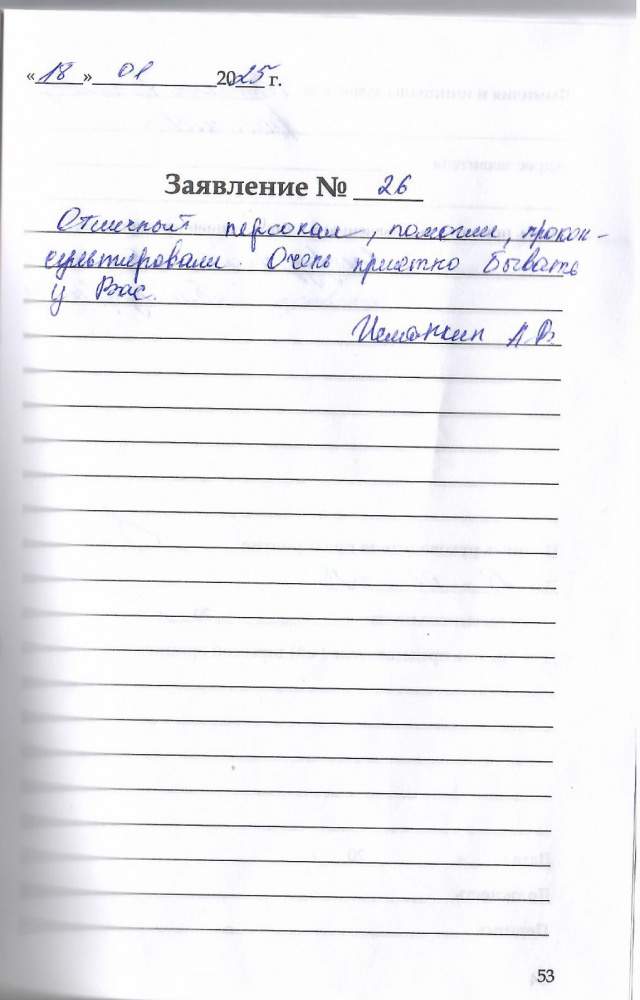 «18» 01 2025 г.
Заявление № 26
Отличный персонал, помогли, прокон-
сультировали. Очень приятно бывать
у Вас.
А.В.
53